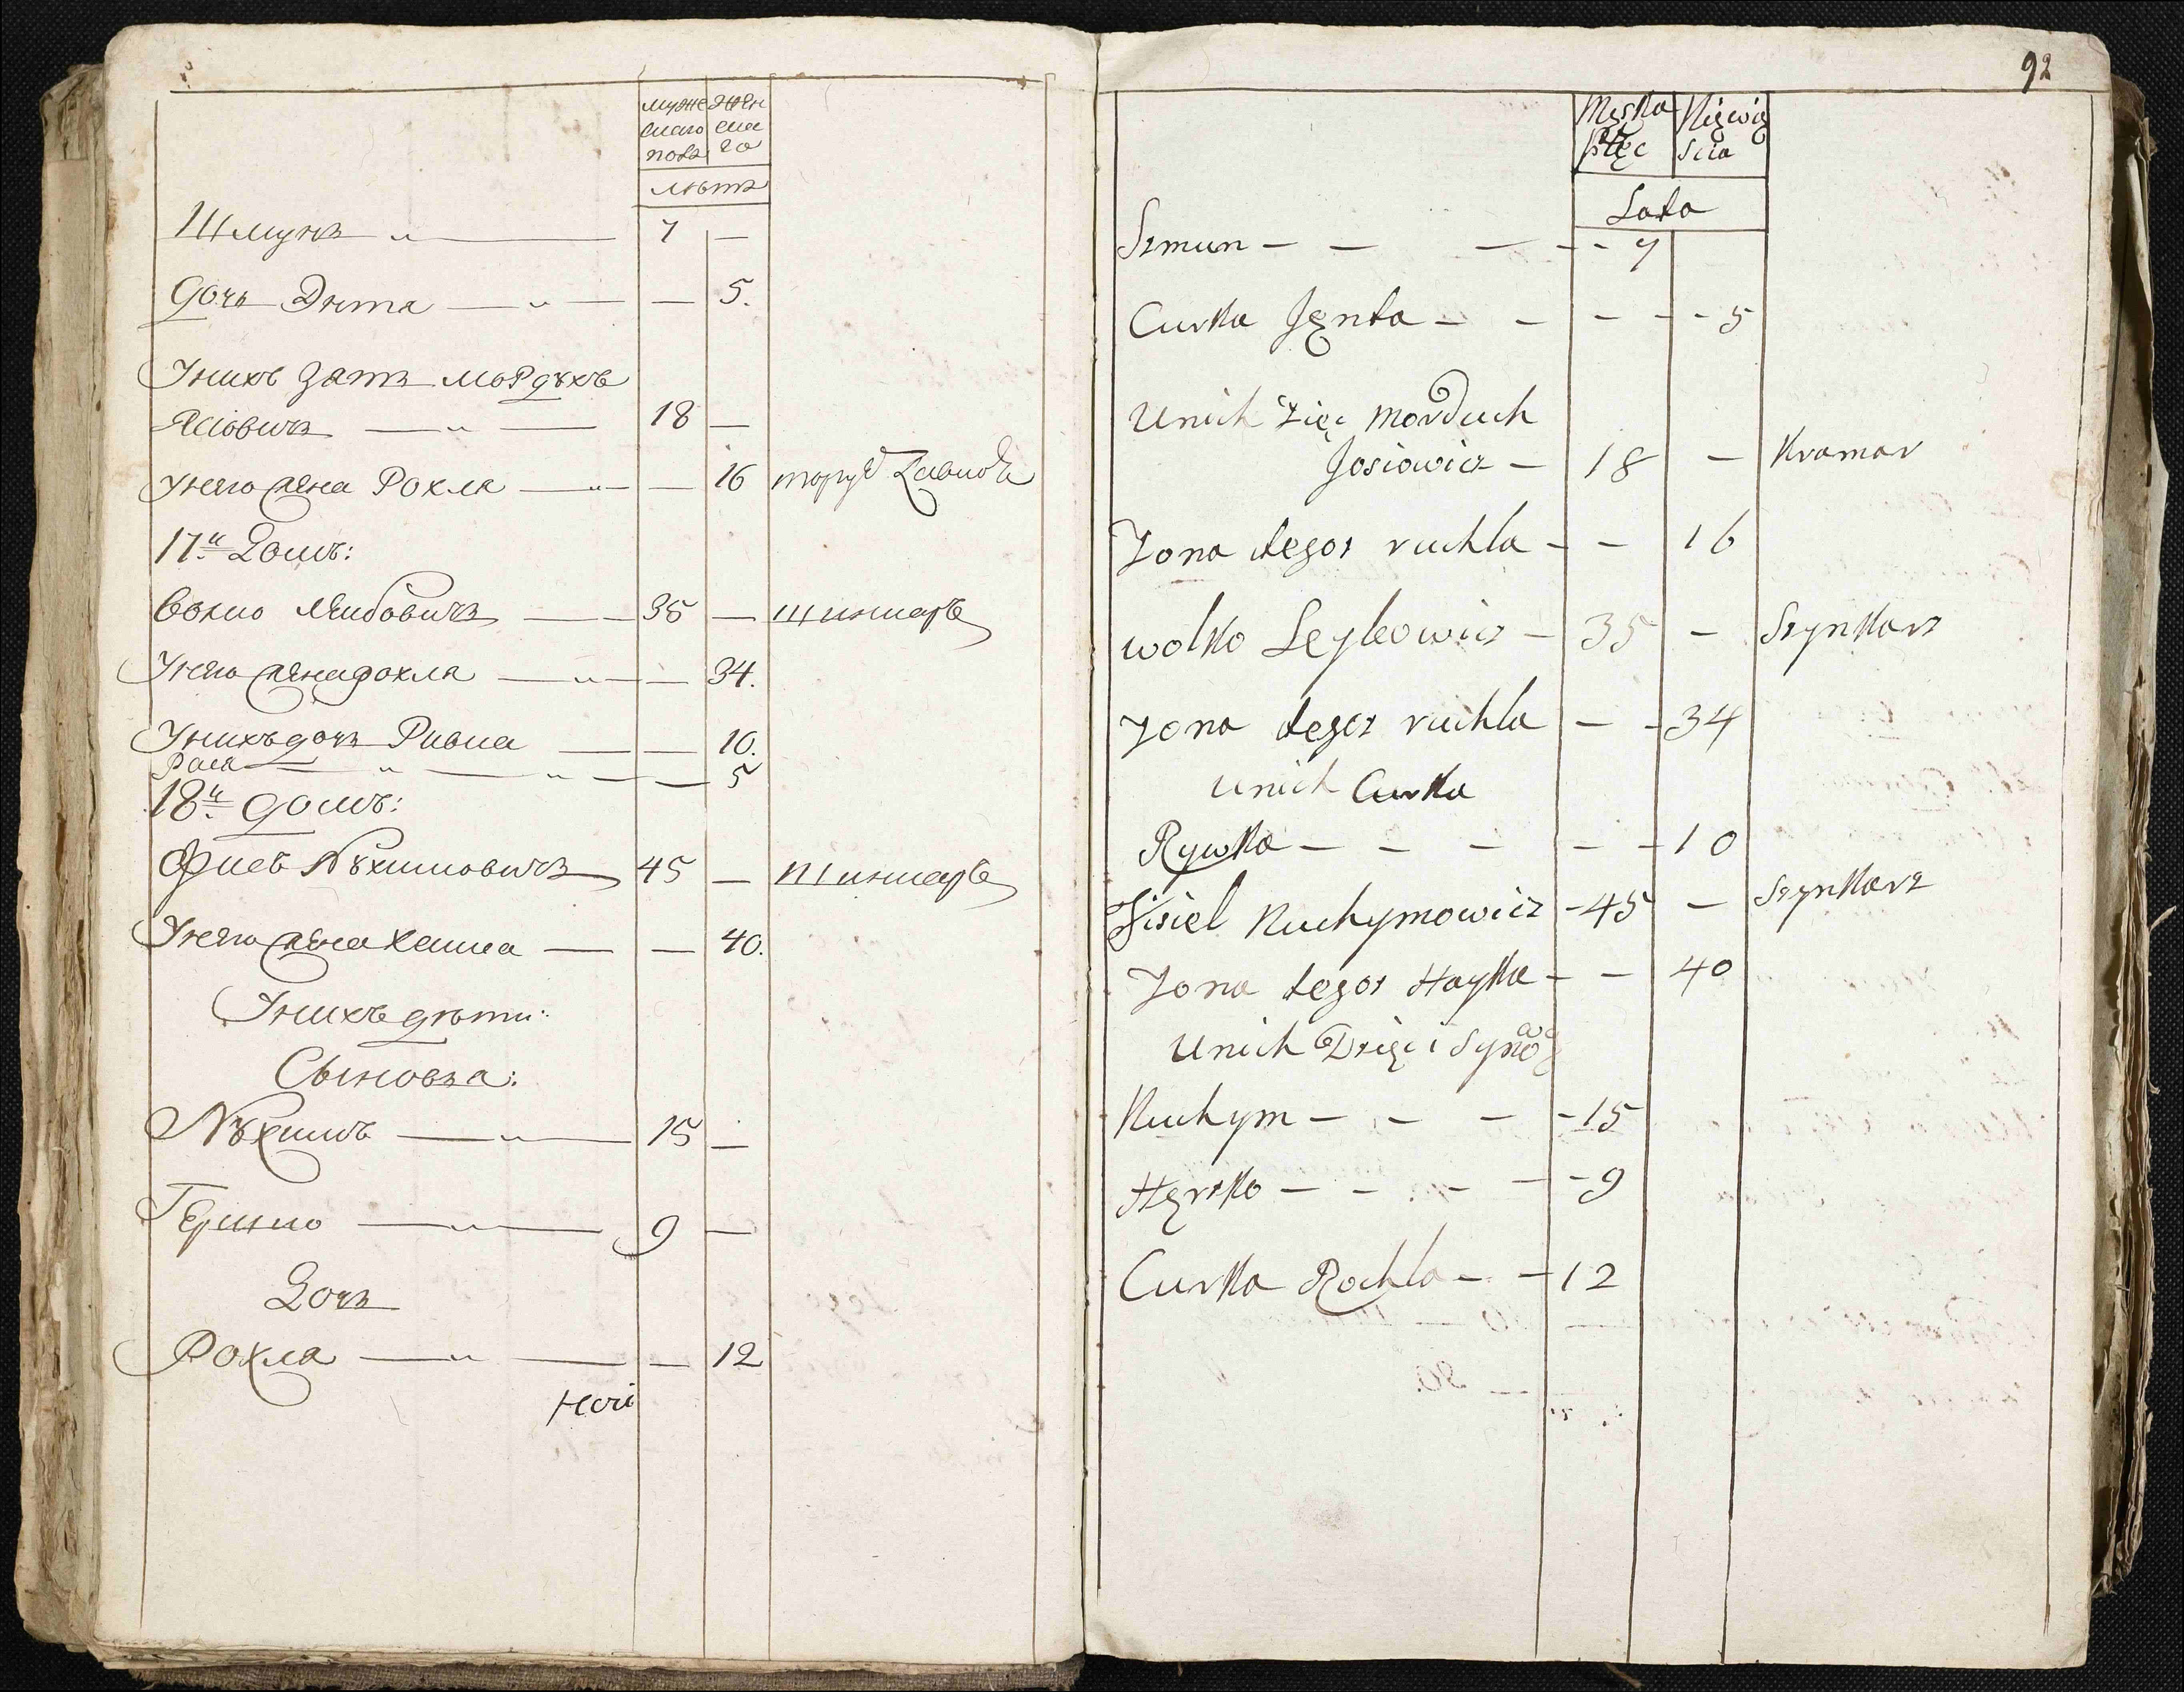 муже жен
скаго ска
полъ го
лѣтъ
Шмунъ — 7 —
дочь Энта — — 5.
Унихъ зять Мордухъ
Іосіовичъ — 18 —
Унего жена Рохля — — 16 торус
17й Домъ:
Волко Лейбовичъ — 35 — Шинкарь
Унего жена рохля — — 34.
Унихъ дочь Ривка — — 10.
Рася — — 5
18й домъ:
Фисель Нухимовичъ 45 — Шинкарь
Унего жена Хаика — — 40.
Унихъ дѣти:
Сыновъя:
Нухимъ — 15 —
Гершко — 9 —
Дочь
Рохля — — 12
92
Męska Niewie
płec scia
Lata
Szmun — — — - - 7
Curka Jęnta — — - - - 5
Unich Zięc Morduch
Josiowicz — 18 — Kramar
Zona tegoz ruchla - — 16
Wolko Leybowicz — 35 — Szynkarz
Zona tegoz ruchla — - 34
Unich Curka
Rywka — — — — - 10
Fisiel Nuchymowicz - 45 — Szynkarz
Zona tegoz Hayka - — 40
Unich Dzięci Synow
Nuchym — - — - 15
Hęrszko — — — — - 9
Curka Rochla — — 12